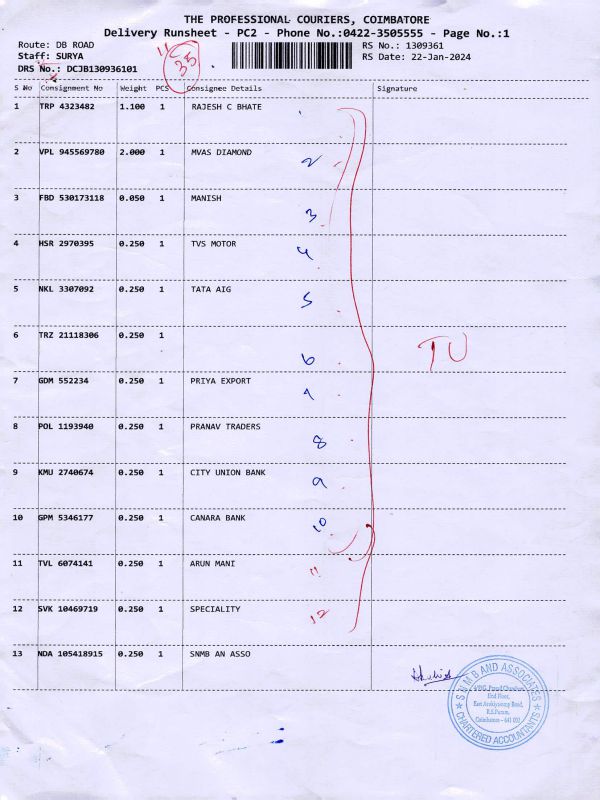 THE PROFESSIONAL COURIERS, COIMBATORE
Delivery Runsheet - PC2 - Phone No.:0422-3505555 - Page No.:1
Route: DB ROAD RS No.: 1309361
Staff: SURYA RS Date: 22-Jan-2024
DRS No.: DCJB130936101
11 35
S No Consignment No Weight PCS Consignee Details Signature
1 TRP 4323482 1.100 1 RAJESH C BHATE
2 VPL 945569780 2.000 1 MVAS DIAMOND 2
3 FBD 530173118 0.050 1 MANISH 3
4 HSR 2970395 0.250 1 TVS MOTOR 4
5 NKL 3307092 0.250 1 TATA AIG 5
6 TRZ 21118306 0.250 1 6
TU
7 GDM 552234 0.250 1 PRIYA EXPORT 7
8 POL 1193940 0.250 1 PRANAV TRADERS 8
9 KMU 2740674 0.250 1 CITY UNION BANK 9
10 GPM 5346177 0.250 1 CANARA BANK 10
11 TVL 6074141 0.250 1 ARUN MANI 11
12 SVK 10469719 0.250 1 SPECIALITY 12
13 NDA 105418915 0.250 1 SNMB AN ASSO
S N M B AND ASSOCIATES
IInd Floor,
R.S.Puram,
Coimbatore - 641 002
CHARTERED ACCOUNTANTS